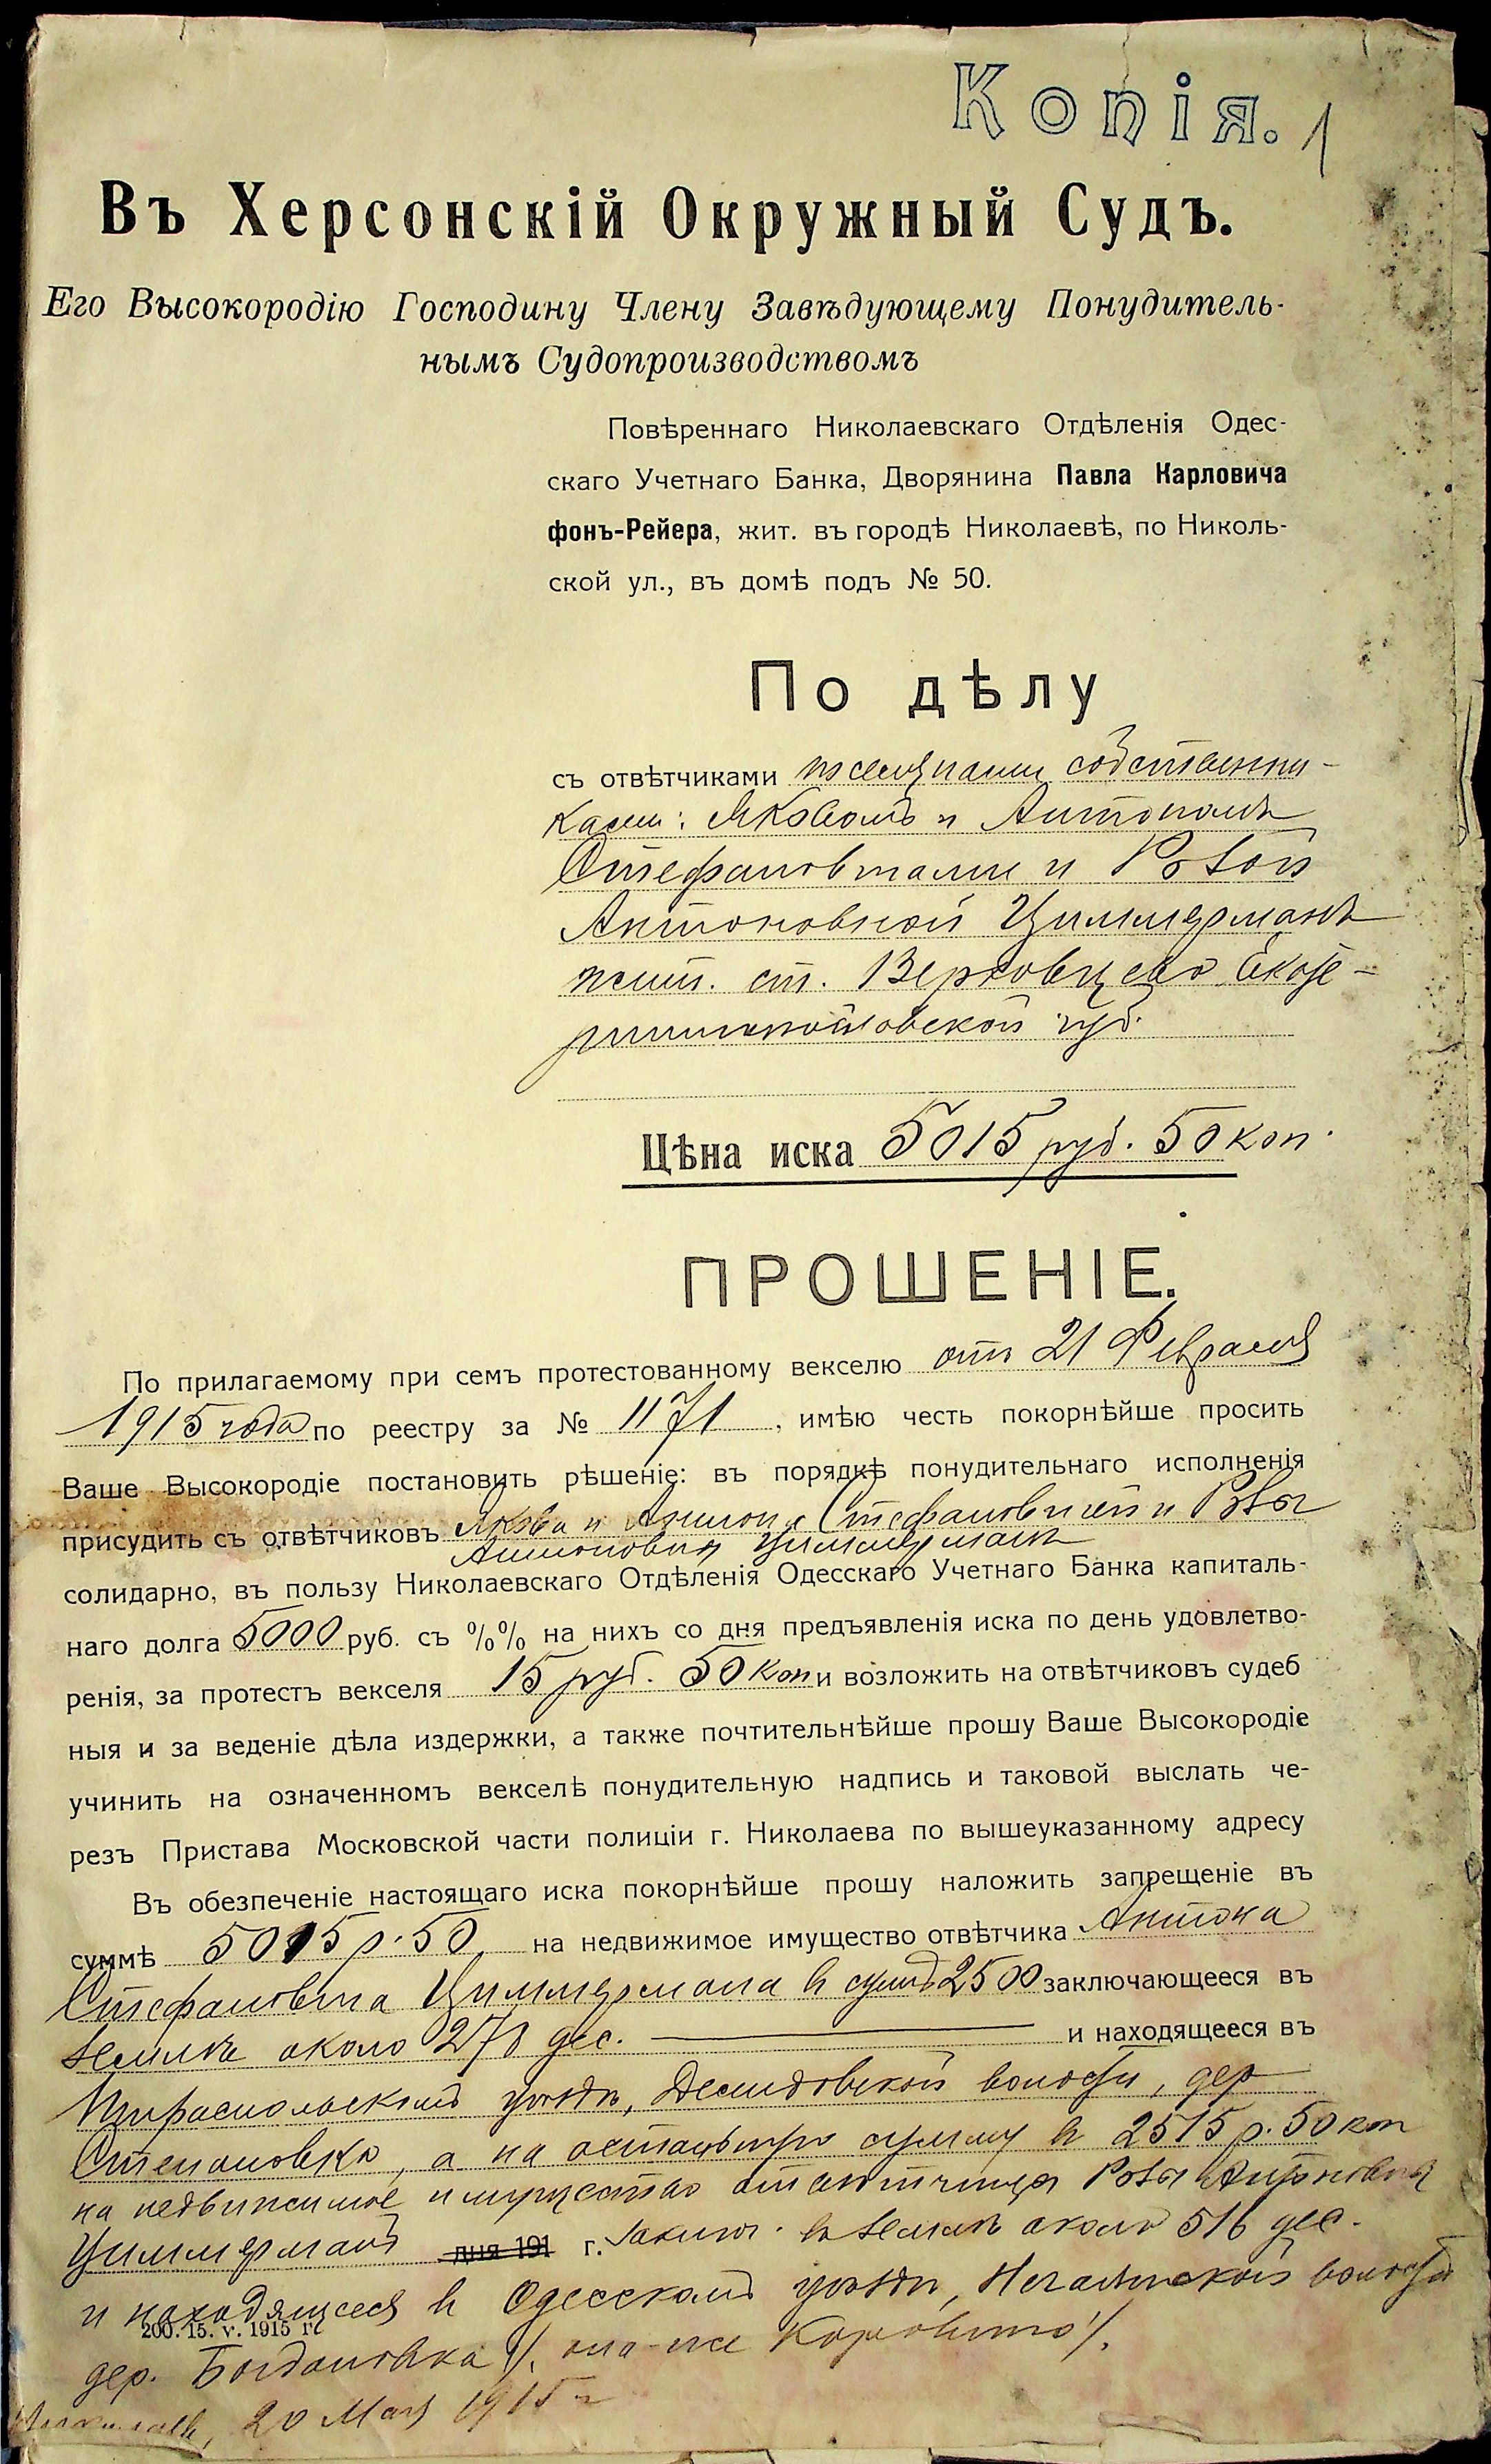 Копія. 1
Въ Херсонскій Окружный Судъ.
Его Высокородію Господину Члену Завѣдующему Понудитель-
нымъ Судопроизводствомъ
Повѣреннаго Николаевскаго Отдѣленія Одес-
скаго Учетнаго Банка, Дворянина Павла Карловича
фонъ-Рейера, жит. въ городѣ Николаевѣ, по Николь-
ской ул., въ домѣ подъ № 50.
По дѣлу
съ отвѣтчиками поселянами собственни-
ками: Яковомъ и Антономъ
Стефановичами и Розой
Антоновной Циммерманъ
жит. ст. Верховцево Екате-
ринославской губ.
Цѣна иска 5015 руб. 50 коп.
ПРОШЕНІЕ.
По прилагаемому при семъ протестованному векселю отъ 21 Февраля
1915 года по реестру за № 1171, имѣю честь покорнѣйше просить
Ваше Высокородіе постановить рѣшеніе: въ порядкѣ понудительнаго исполненія
присудить съ отвѣтчиковъ Якова и Антона Стефановичей и Розы
Антоновны Циммерманъ
солидарно, въ пользу Николаевскаго Отдѣленія Одесскаго Учетнаго Банка капиталь-
наго долга 5000 руб. съ %% на нихъ со дня предъявленія иска по день удовлетво-
ренія, за протестъ векселя 15 руб. 50 коп и возложить на отвѣтчиковъ судеб
ныя и за веденіе дѣла издержки, а также почтительнѣйше прошу Ваше Высокородіе
учинить на означенномъ векселѣ понудительную надпись и таковой выслать че-
резъ Пристава Московской части полиціи г. Николаева по вышеуказанному адресу
Въ обезпеченіе настоящаго иска покорнѣйше прошу наложить запрещеніе въ
суммѣ 5015 р. 50 на недвижимое имущество отвѣтчика Антона
Стефановича Циммермана в суммѣ 2500 заключающееся въ
землѣ около 278 дес. и находящееся въ
Тираспольскомъ уѣздѣ, Демидовской волости, дер
Степановка, а на остальную сумму в 2515 р. 50 коп
на недвижимое имущество отвѣтчицы Розы Антоновны
Циммерманъ дня 191 г. заключ. въ землѣ около 516 дес.
и находящееся в Одесскомъ уѣздѣ, волости
200. 15. v. 1915 г.
дер. Богдановка /, она-же /.
Николаевъ, 20 Мая 1915 г